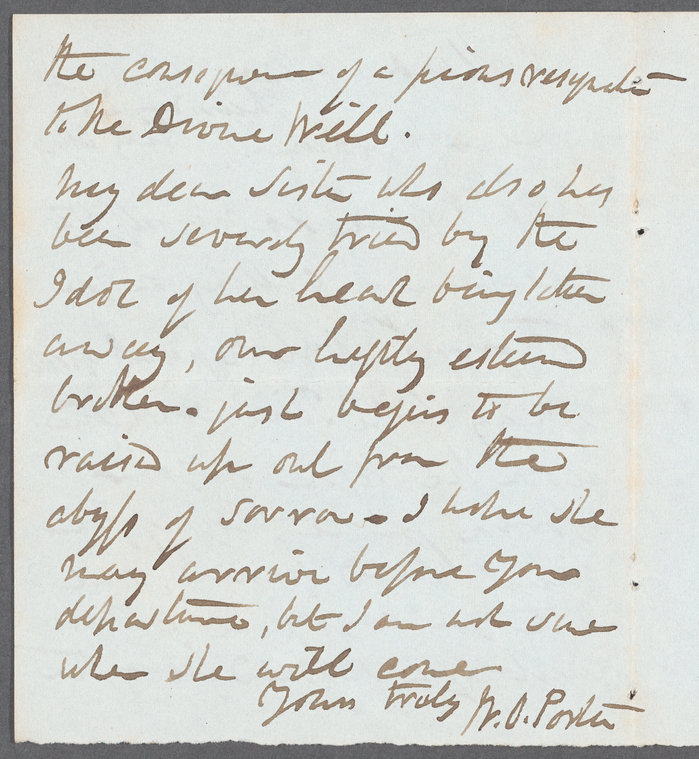 the consequence of a pious resignation
to the Divine Will.
My dear Sister who also has
been severely tried by the
Idol of her heart being taken
away, our highly esteemed
brother. just begins to be
raised up out from the
abyss of sorrow. I hope she
may arrive before your
departure, but I am not sure
when she will come
Yours truly W. O. Porter